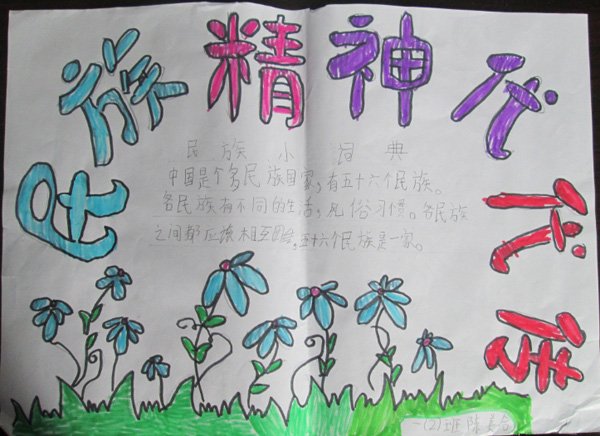 民族精神代代传
民族小词典
中国是个多民族国家,有五十六个民族。
各民族有不同的生活,风俗习惯。各民族
之间都应该相互团结,五十六个民族是一家。
一(2)班 陈